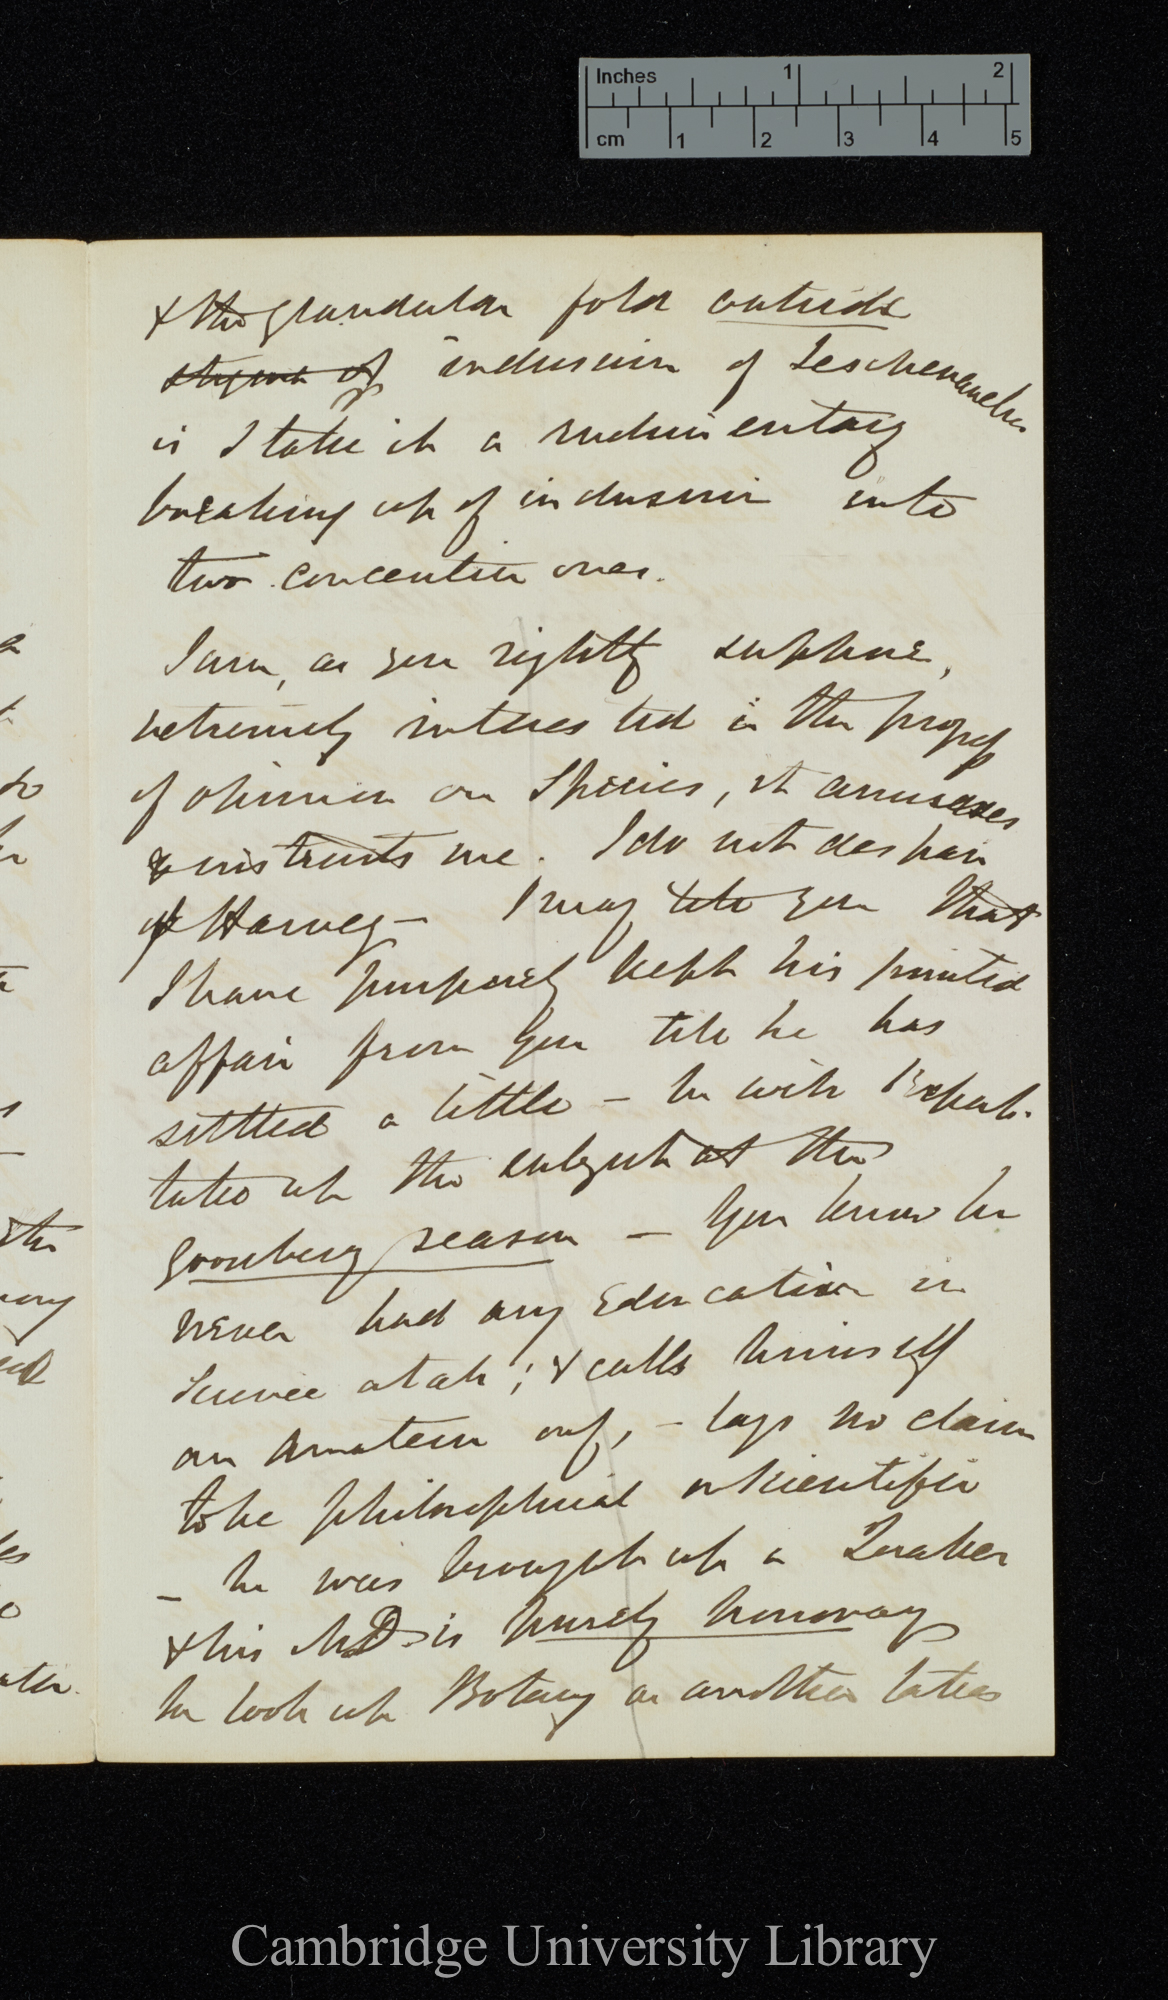 Inches 1 2
cm 1 2 3 4 5
& the glandular fold outside
stigma of indusium of Leschenaultia
is I take it a rudimentary
breaking up of indusium into
two concentric ones.
I am, as you rightly suppose,
extremely interested in the progress
of opinion on Species, it amuses
& instructs me. I do not despair
of Harvey — I may tell you that
I have purposely kept his printed
affair from you till he has
settled a little — he will
take up the subject at the
Gooseberry season — You know he
never had any Education in
Science at all; & calls himself
an Amateur only, — lays no claim
to be philosophical or scientific
— he was brought up a Quaker
& his MD is purely honorary
he took up Botany as another takes
Cambridge University Library